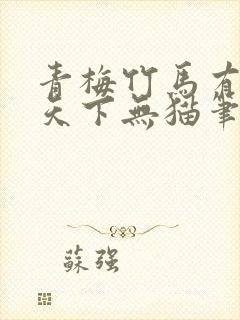 青梅竹馬有
天下無貓筆
蘇強